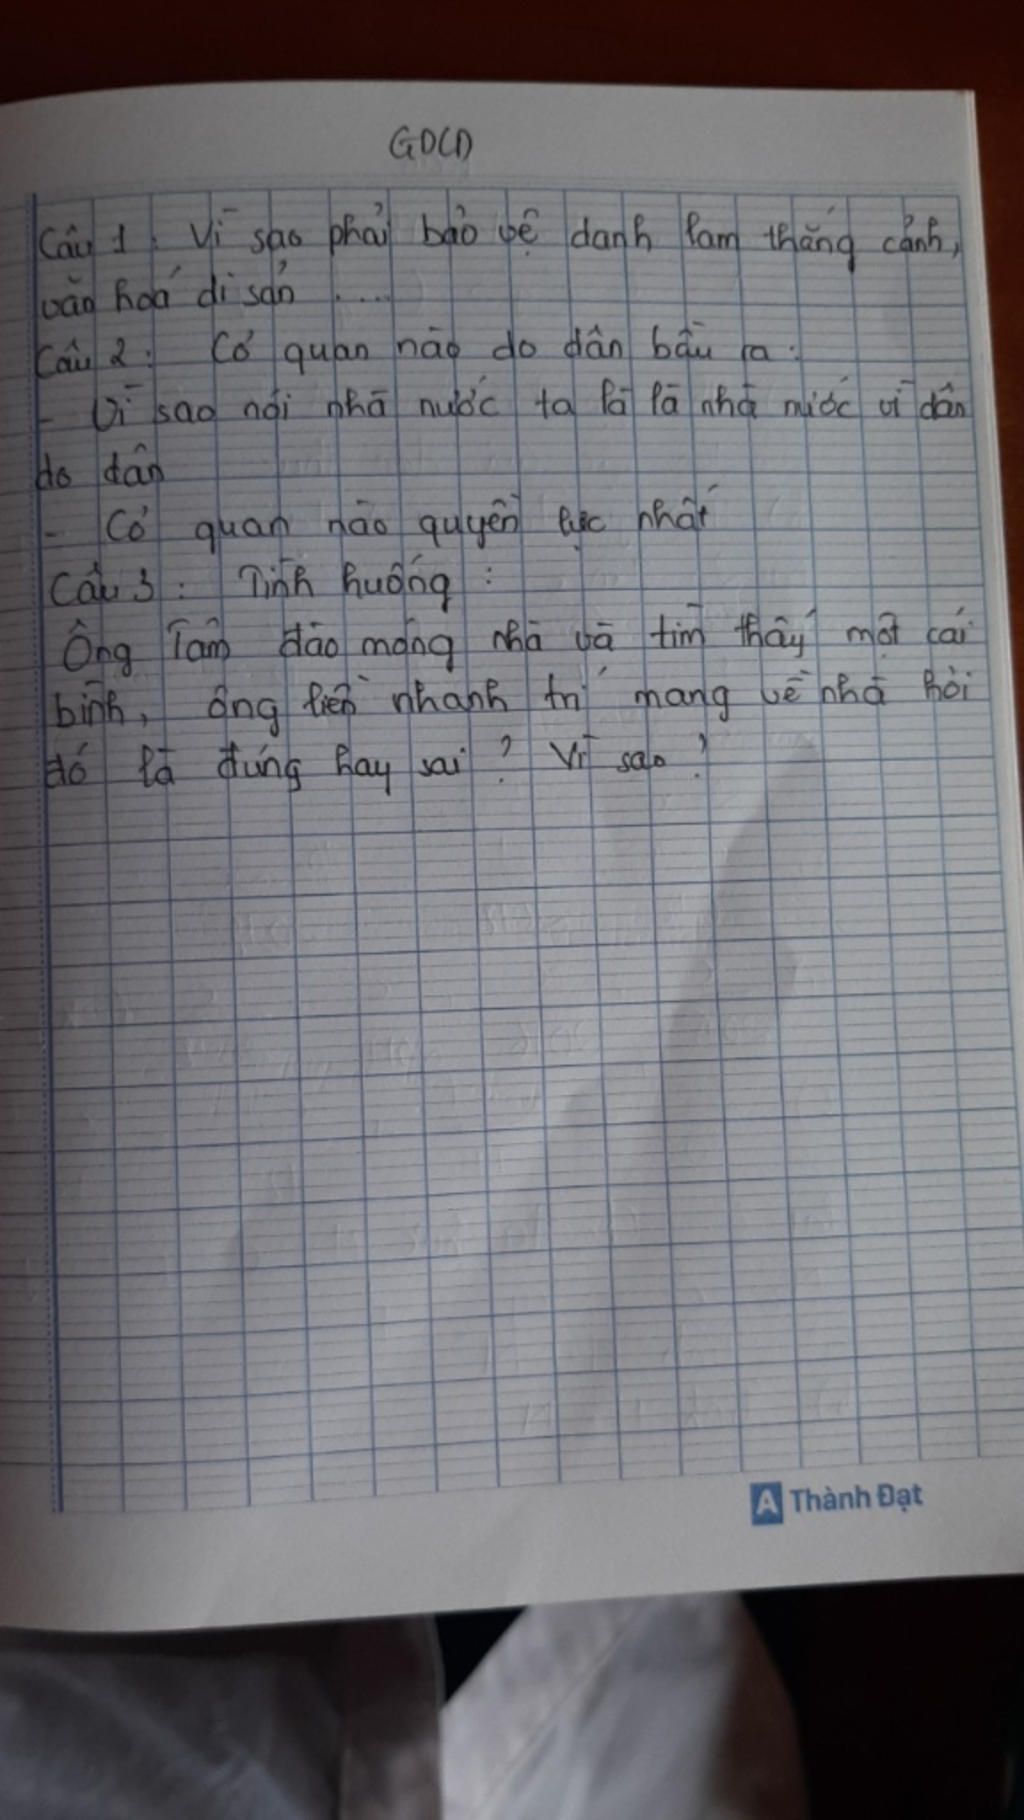 GDCD
Câu 1: Vì sao phải bảo vệ danh lam thắng cảnh,
văn hoá di sản ....
Câu 2: Cơ quan nào do dân bầu ra:
- Vì sao nói nhà nước ta là là nhà nước vì dân
do dân
- Cơ quan nào quyền lực nhất
Câu 3: Tình huống:
Ông Tâm đào móng nhà và tìm thấy một cái
bình, ông liền nhanh trí mang về nhà hỏi
đó là đúng hay sai? Vì sao?
A Thành Đạt